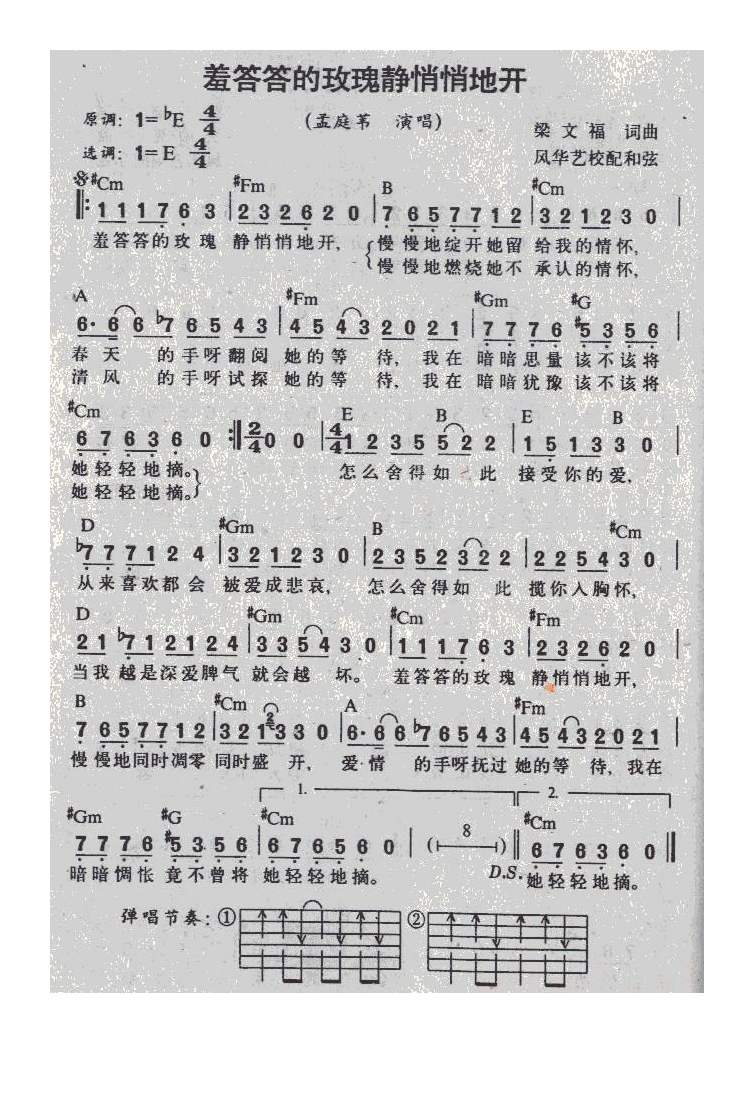 羞答答的玫瑰静悄悄地开
原调：1=♭E 4/4
(孟庭苇 演唱)
梁文福 词曲
选调：1=E 4/4
风华艺校配和弦
#Cm #Fm B #Cm
1 1 1 7 6 3 | 2 3 2 6 2 0 | 7 6 5 7 7 1 2 | 3 2 1 2 3 0 |
羞答答的玫瑰 静悄悄地开， 慢慢地绽开她留 给我的情怀，
慢慢地燃烧她不 承认的情怀，
A #Fm #Gm #G
6· 6 6 ♭7 6 5 4 3 | 4 5 4 3 2 0 2 1 | 7 7 7 6 #5 3 5 6 |
春天 的手呀翻阅 她的等 待，我在 暗暗思量 该不该将
清风 的手呀试探 她的等 待，我在 暗暗犹豫 该不该将
#Cm E B E B
6 7 6 3 6 0 :‖ 2/4 0 0 | 4/4 1 2 3 5 5 2 2 | 1 5 1 3 3 0 |
她轻轻地摘。 怎么舍得如 此 接受你的爱，
她轻轻地摘。
D #Gm B #Cm
♭7 7 7 1 2 4 | 3 2 1 2 3 0 | 2 3 5 2 3 2 2 | 2 2 5 4 3 0 |
从来喜欢都会 被爱成悲哀， 怎么舍得如 此 揽你入胸怀，
D #Gm #Cm #Fm
2 1 ♭7 1 2 1 2 4 | 3 3 5 4 3 0 | 1 1 1 7 6 3 | 2 3 2 6 2 0 |
当我越是深爱脾气 就会越 坏。 羞答答的玫瑰 静悄悄地开，
B #Cm A #Fm
7 6 5 7 7 1 2 | 3 2 1 2 3 3 0 | 6· 6 6 ♭7 6 5 4 3 | 4 5 4 3 2 0 2 1 |
慢慢地同时凋零 同时盛 开， 爱·情 的手呀抚过 她的等 待，我在
1. 2.
#Gm #G #Cm 8 #Cm
7 7 7 6 #5 3 5 6 | 6 7 6 5 6 0 | ( ) ‖ 6 7 6 3 6 0 ‖
暗暗惆怅 竟不曾将 她轻轻地摘。 D.S. 她轻轻地摘。
弹唱节奏：① ②